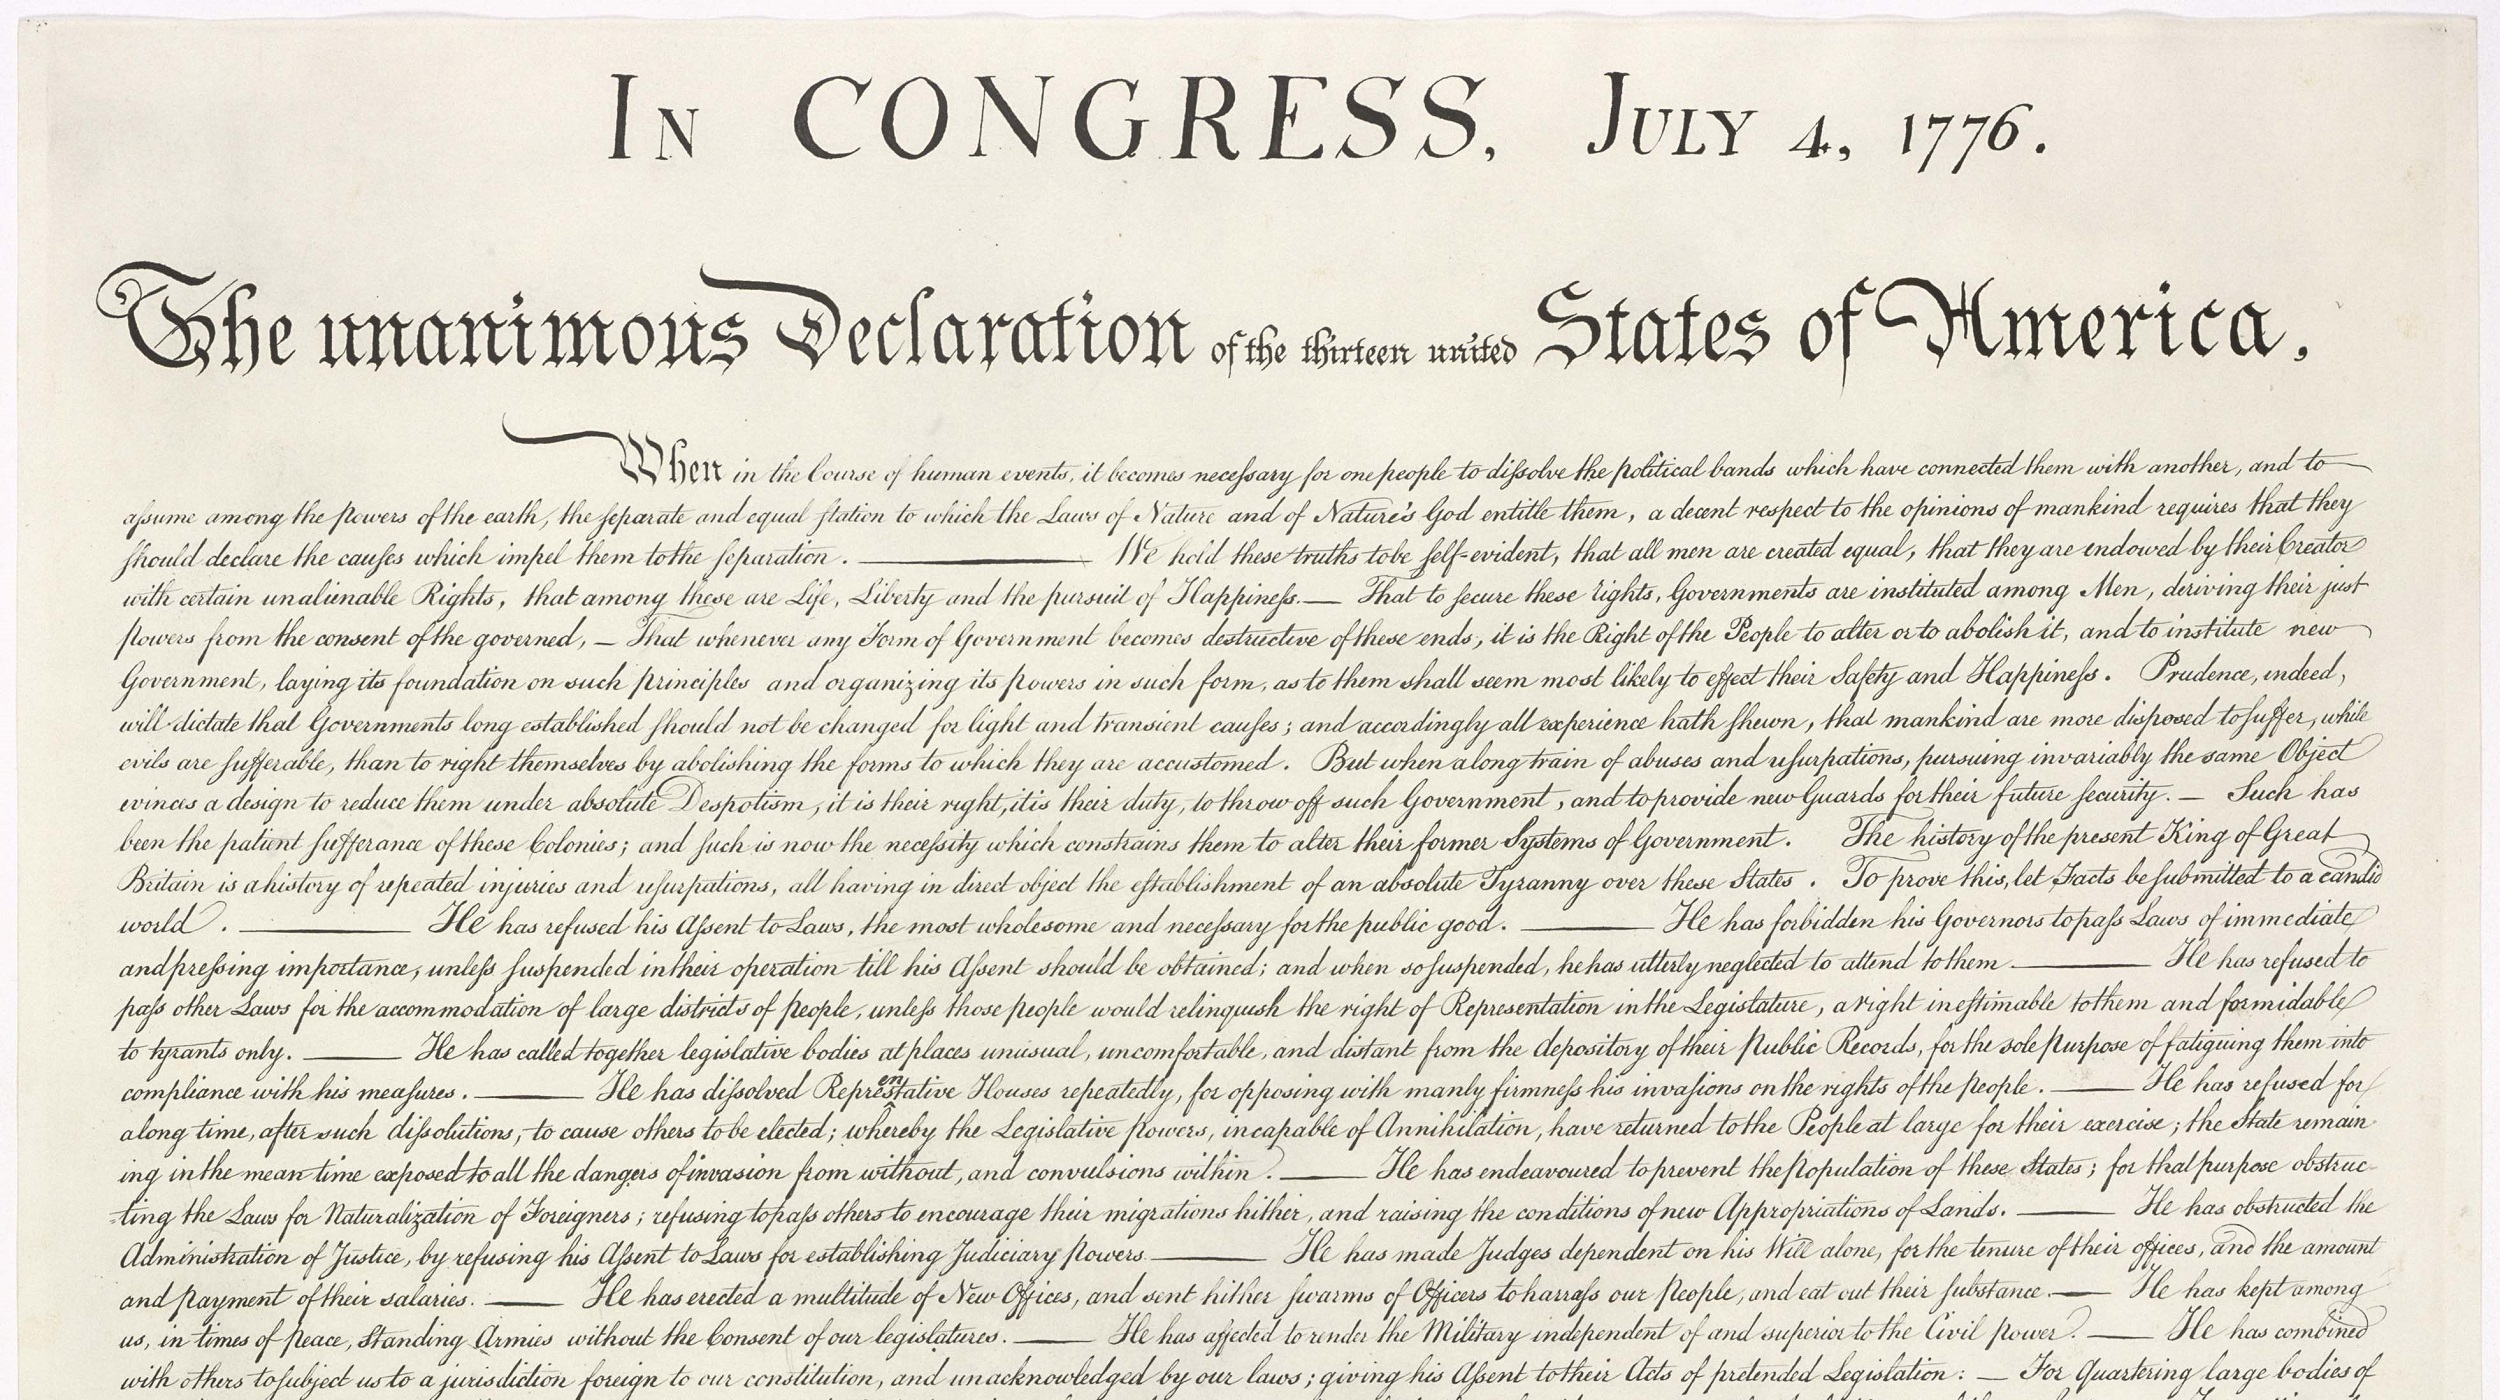 In CONGRESS, July 4, 1776.
The unanimous Declaration of the thirteen united States of America,
When in the Course of human events, it becomes necessary for one people to dissolve the political bands which have connected them with another, and to
assume among the powers of the earth, the separate and equal station to which the Laws of Nature and of Nature's God entitle them, a decent respect to the opinions of mankind requires that they
should declare the causes which impel them to the separation. ——— We hold these truths to be self-evident, that all men are created equal, that they are endowed by their Creator
with certain unalienable Rights, that among these are Life, Liberty and the pursuit of Happiness.— That to secure these rights, Governments are instituted among Men, deriving their just
powers from the consent of the governed, — That whenever any Form of Government becomes destructive of these ends, it is the Right of the People to alter or to abolish it, and to institute new
Government, laying its foundation on such principles and organizing its powers in such form, as to them shall seem most likely to effect their Safety and Happiness. Prudence, indeed,
will dictate that Governments long established should not be changed for light and transient causes; and accordingly all experience hath shewn, that mankind are more disposed to suffer, while
evils are sufferable, than to right themselves by abolishing the forms to which they are accustomed. But when a long train of abuses and usurpations, pursuing invariably the same Object
evinces a design to reduce them under absolute Despotism, it is their right, it is their duty, to throw off such Government, and to provide new Guards for their future security. — Such has
been the patient sufferance of these Colonies; and such is now the necessity which constrains them to alter their former Systems of Government. The history of the present King of Great
Britain is a history of repeated injuries and usurpations, all having in direct object the establishment of an absolute Tyranny over these States. To prove this, let Facts be submitted to a candid
world. ——— He has refused his Assent to Laws, the most wholesome and necessary for the public good. ——— He has forbidden his Governors to pass Laws of immediate
and pressing importance, unless suspended in their operation till his Assent should be obtained; and when so suspended, he has utterly neglected to attend to them ——— He has refused to
pass other Laws for the accommodation of large districts of people, unless those people would relinquish the right of Representation in the Legislature, a right inestimable to them and formidable
to tyrants only. ——— He has called together legislative bodies at places unusual, uncomfortable, and distant from the depository of their Public Records, for the sole purpose of fatiguing them into
compliance with his measures. ——— He has dissolved Representative Houses repeatedly, for opposing with manly firmness his invasions on the rights of the people. ——— He has refused for
a long time, after such dissolutions, to cause others to be elected; whereby the Legislative powers, incapable of Annihilation, have returned to the People at large for their exercise; the State remain
ing in the mean time exposed to all the dangers of invasion from without, and convulsions within. ——— He has endeavoured to prevent the population of these States; for that purpose obstruc-
ting the Laws for Naturalization of Foreigners; refusing to pass others to encourage their migrations hither, and raising the conditions of new Appropriations of Lands. ——— He has obstructed the
Administration of Justice, by refusing his Assent to Laws for establishing Judiciary powers ——— He has made Judges dependent on his Will alone, for the tenure of their offices, and the amount
and payment of their salaries. ——— He has erected a multitude of New Offices, and sent hither swarms of Officers to harrass our people, and eat out their substance. — He has kept among
us, in times of peace, Standing Armies without the Consent of our legislatures. ——— He has affected to render the Military independent of and superior to the Civil power. ——— He has combined
with others to subject us to a jurisdiction foreign to our constitution, and unacknowledged by our laws; giving his Assent to their Acts of pretended Legislation: — For Quartering large bodies of